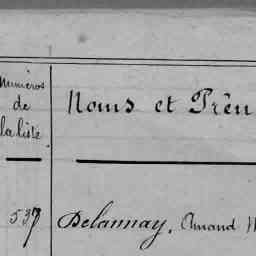 Numéros
de
la liste
Noms et Prén
537 Delannay, Amand